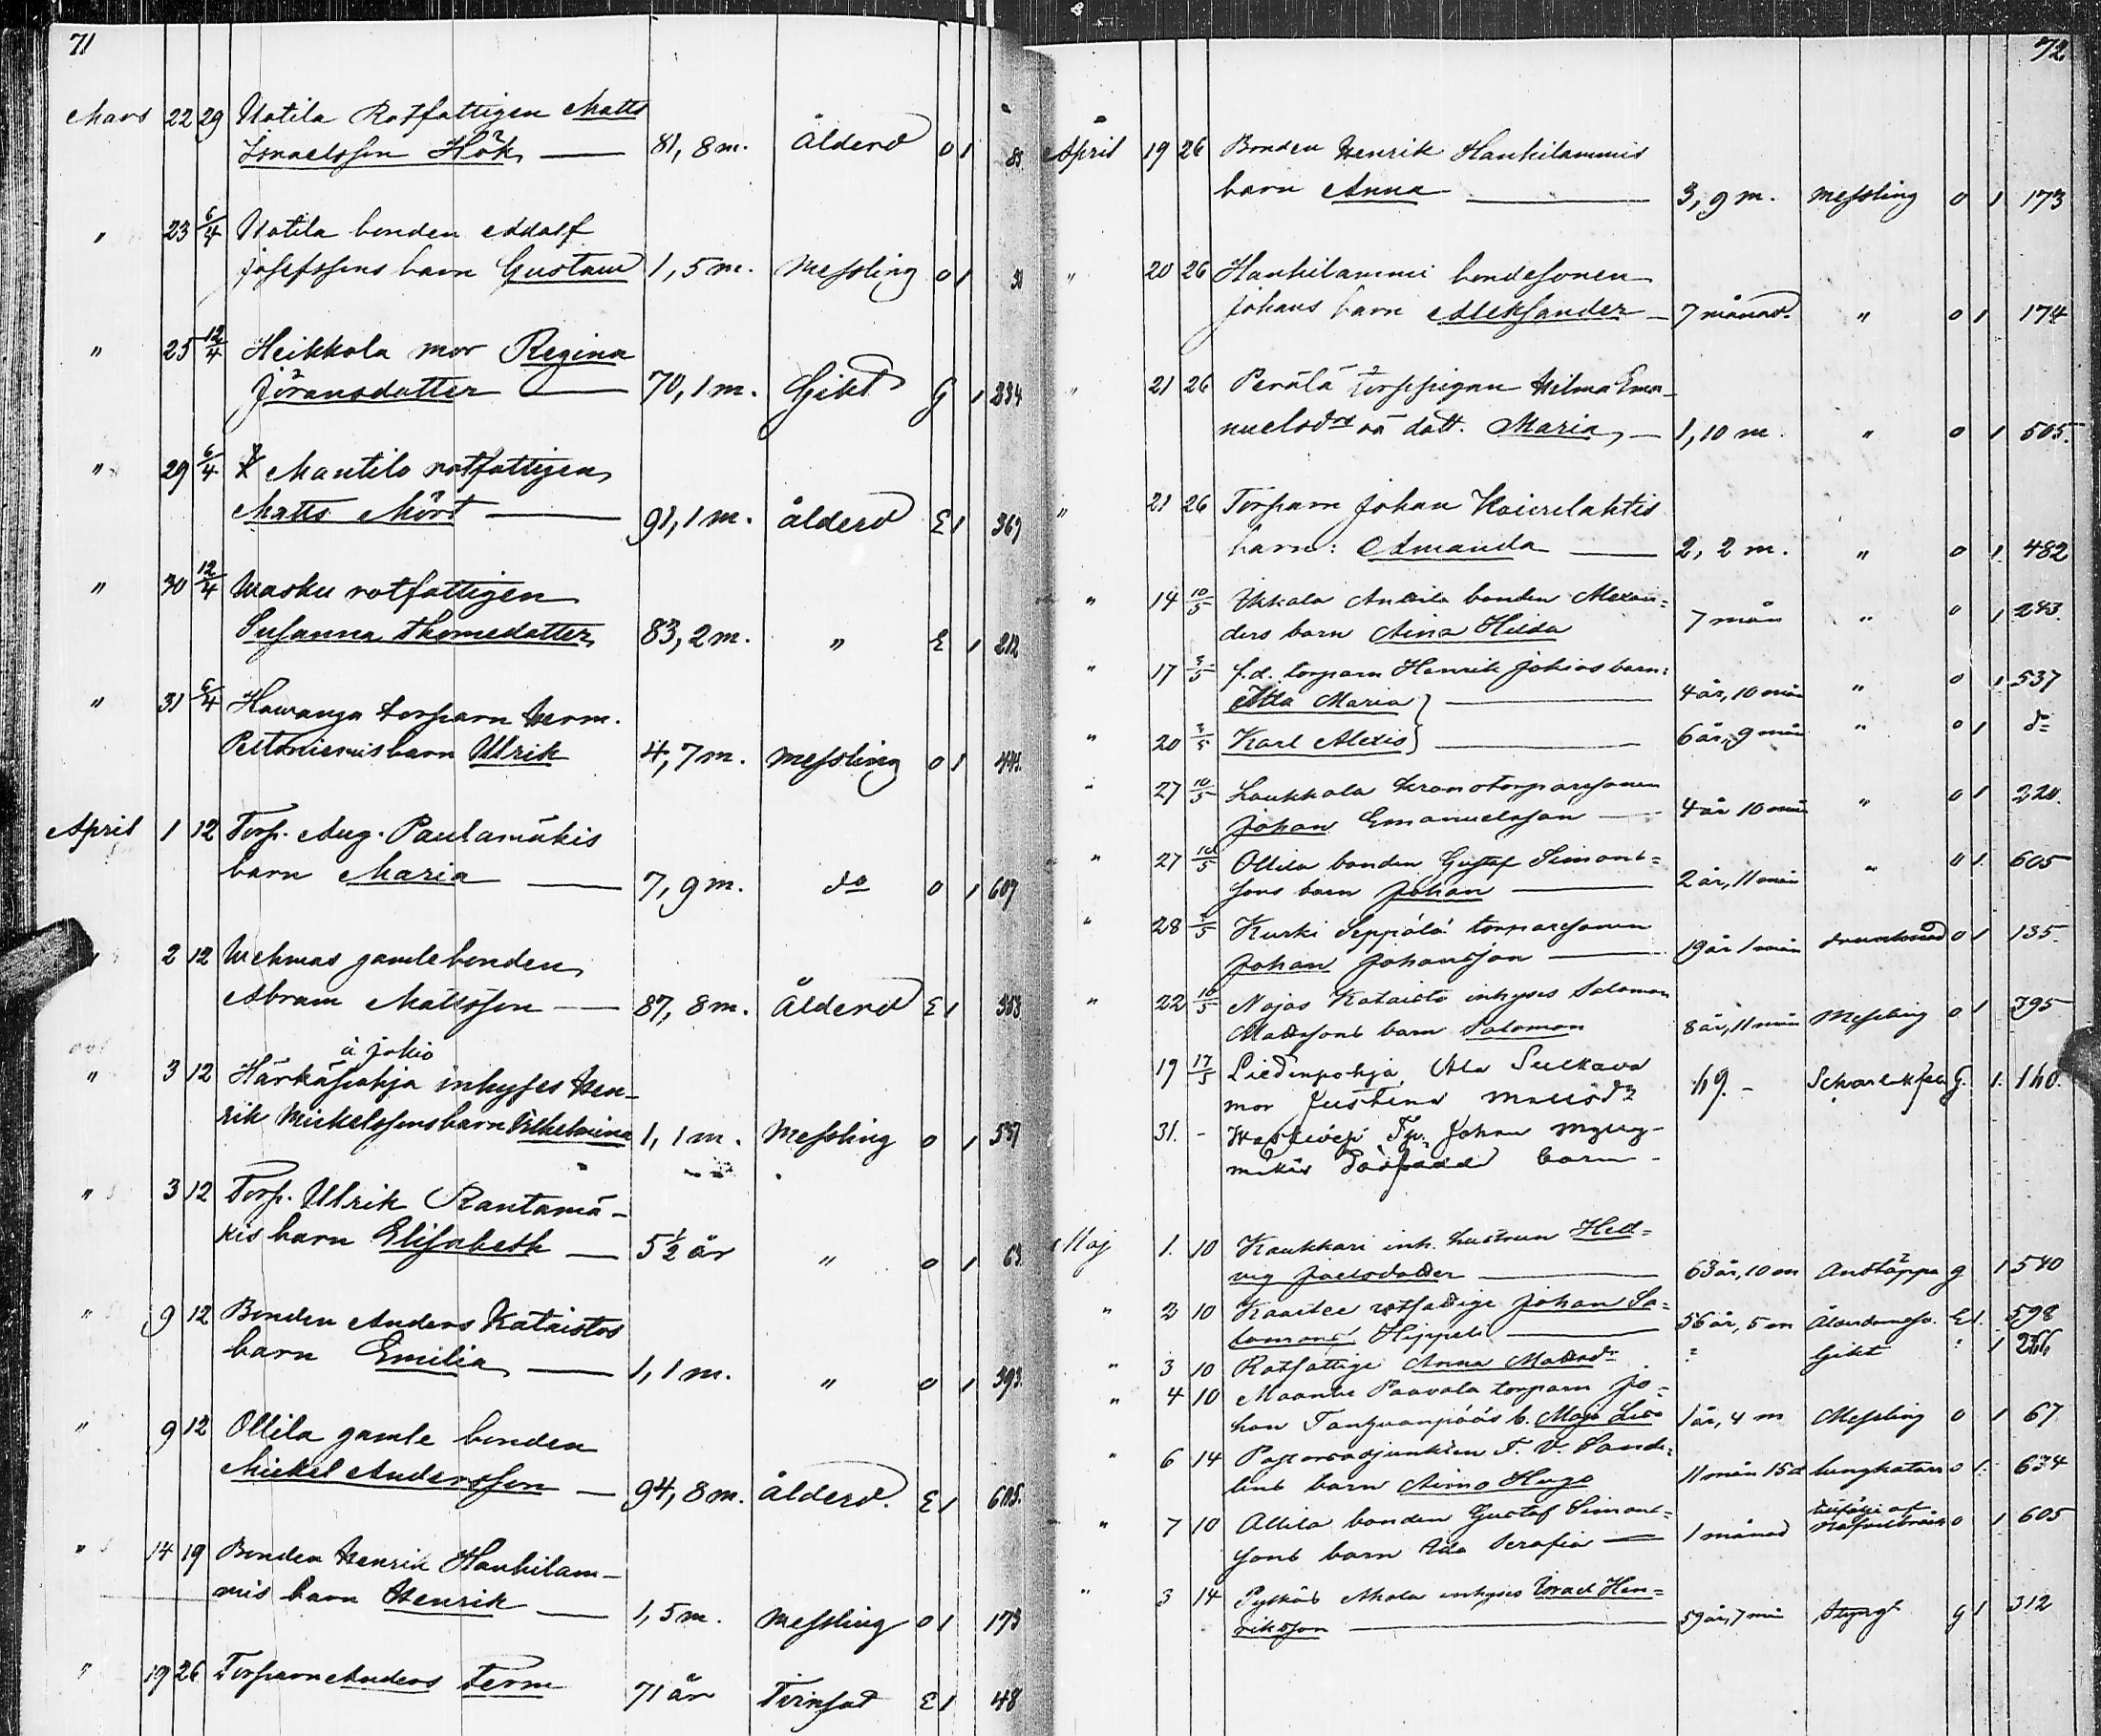 71
Mars 22 29 Uotila Rotfattigen Matts
Israelsson Hök — 81, 8 m. Ålderd o 1 85
" 23 6/4 Uotila bonden Adolf
Josefssons barn Gustaw 1, 5 m. Messling o 1
" 25 12/4 Heikkola mor Regina
Jöransdotter — 70, 1 m. Gikt G 1 234
" 29 6/4 Mantila rotfattigen
Matts Mört — 91, 1 m. ålderd E 1 369
" 30 12/4 Wasku rotfattigen
Susanna Thomedotter 83, 2 m. " E 1 212
" 31 6/4 Hawanga torparn Herm.
Peltoniemis barn Ulrik 4, 7 m. Messling o 1
April 1 12 Torp. Aug. Paulamäkis
barn Maria — 7, 9 m. do o 1 607
2 12 Wehmas gamlebonden
Abram Mattsson — 87, 8 m. Ålderd E 1 353
å jokio
" 3 12 Härkäpohja inhyses Hen-
rik Mickelssons barn Wilhelmina 1, 1 m. Messling o 1 537
" 3 12 Torp. Ulrik Rantamä-
kis barn Elisabeth — 5 1/2 år " o 1 63
" 9 12 Bonden Anders Kataistos
barn Emilia — 1, 1 m. " o 1 393
" 9 12 Ollila gamle bonden
Mickel Andersson — 94, 8 m. Ålderd. E 1 605.
" 14 19 Bonden Henrik Hanhilam-
mis barn Henrik — 1, 5 m. Messling o 1 173
" 19 26 Torparn Anders Term 71 år Tvinsot E 1 48
72
April 19 26 Bonden Henrik Hanhilammis
barn Anna — 3, 9 m. Messling o 1 173
" 20 26 Hanhilammi bondesonen
Johans barn Aleksander — 7 månad. " o 1 174
" 21 26 Perälä torppigan Wilma Ema-
nuelsdrs oä dott. Maria, — 1, 10 m. " o 1 505.
" 21 26 Torparn Johan Koivulahtis
barn: Amanda — 2, 2 m. " o 1 482
" 14 10/5 Ikkala Anttila bonden Alexan=
ders barn Aina Hilda 7 mån " o 1 243.
" 17 3/5 f.d. torparn Henrik Jokios barn:
Maria } — 4 år, 10 mån " o 1 537
" 20 3/5 Karl Alexis } — 6 år, 9 mån " o 1 do
" 27 10/5 Laukkala kronotorparesonen
Johan Emanuelsson — 4 år 10 mån " o 1 220.
" 27 10/5 Ollila bonden Gustaf Simons=
sons barn Johan — 2 år, 11 mån " o 1 605
" 28 /5 Kurki Seppälä torparesonen
Johan Johansson — 19 år 1 mån drunknad o 1 135
" 22 10/5 Nojos Kataisto inhyses Salomon
Mattssons barn Salomon 8 år, 11 mån Messling o 1 395
19 17/5 Liedenpohja, Ala Sulkava
mor Justina Mattsdr 49. - Scharlak.feb G. 1. 140.
31. - Johan
barn -
Maj 1. 10 Kaukkari inh. hustrun Hed=
vig Joelsdotter — 63 år, 10 m Andtäppa g 1 540
" 2 10 rotfattige Johan Sa=
lomons Hippeli — 56 år, 5 m Ålderdomssv. E 1. 598
" 3 10 Rotfattige Anna Mattsdr : Gikt : 1 266
" 4 10 Paavola torparn Jo=
han b. Maja Lisa 1 år, 4 m Messling o 1 67
" 6 14 Pastorsadjunkten F. V. Sande=
lins barn Aimo Hugo 11 mån 15 d lungkatarr o 1. 634
" 7 10 Ollila bonden Gustaf Simons=
sons barn Ida Serafia — 1 månad af o 1 605
" 3 14 inhyses Israel Hen=
riksson — 59 år, 7 mån Styng g 1 312